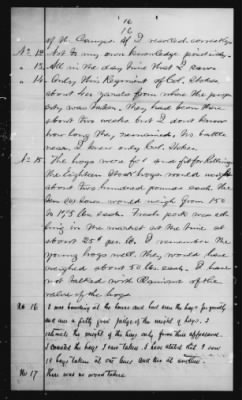 16
16
of N. Camps. If I reacted correctly
No 12 Not to my own knowledge positively.
" 13. All in the day time that I saw.
" 14. Only this Regiment of Col. Stokes
about 400 yards from where the prop-
erty was taken. They had been there
about two weeks but I dont know
how long they remained. No battle
near. I knew only Col. Stokes.
No 15 The hogs were fat and fit for killing
the Eighteen stock hogs would weigh
about two hundred pounds each. the
ten sows would weigh from 150
to 175 lbs each. Fresh pork was sel-
ling in the market at the time at
about 25¢ per lb. I remember the
young hogs well. they would have
weighed about 50 lbs each. I have
not talked with Claimant of the
value of the hogs
No 16 I was hunting at the time and had seen the hogs frequently
and am a pretty good judge of the weight of hogs. I
estimate the weight of the hogs only from their appearance.
I counted the hogs I saw taken. I have stated that I saw
18 hogs taken at one time and ten at another.
No 17 There was no wood taken